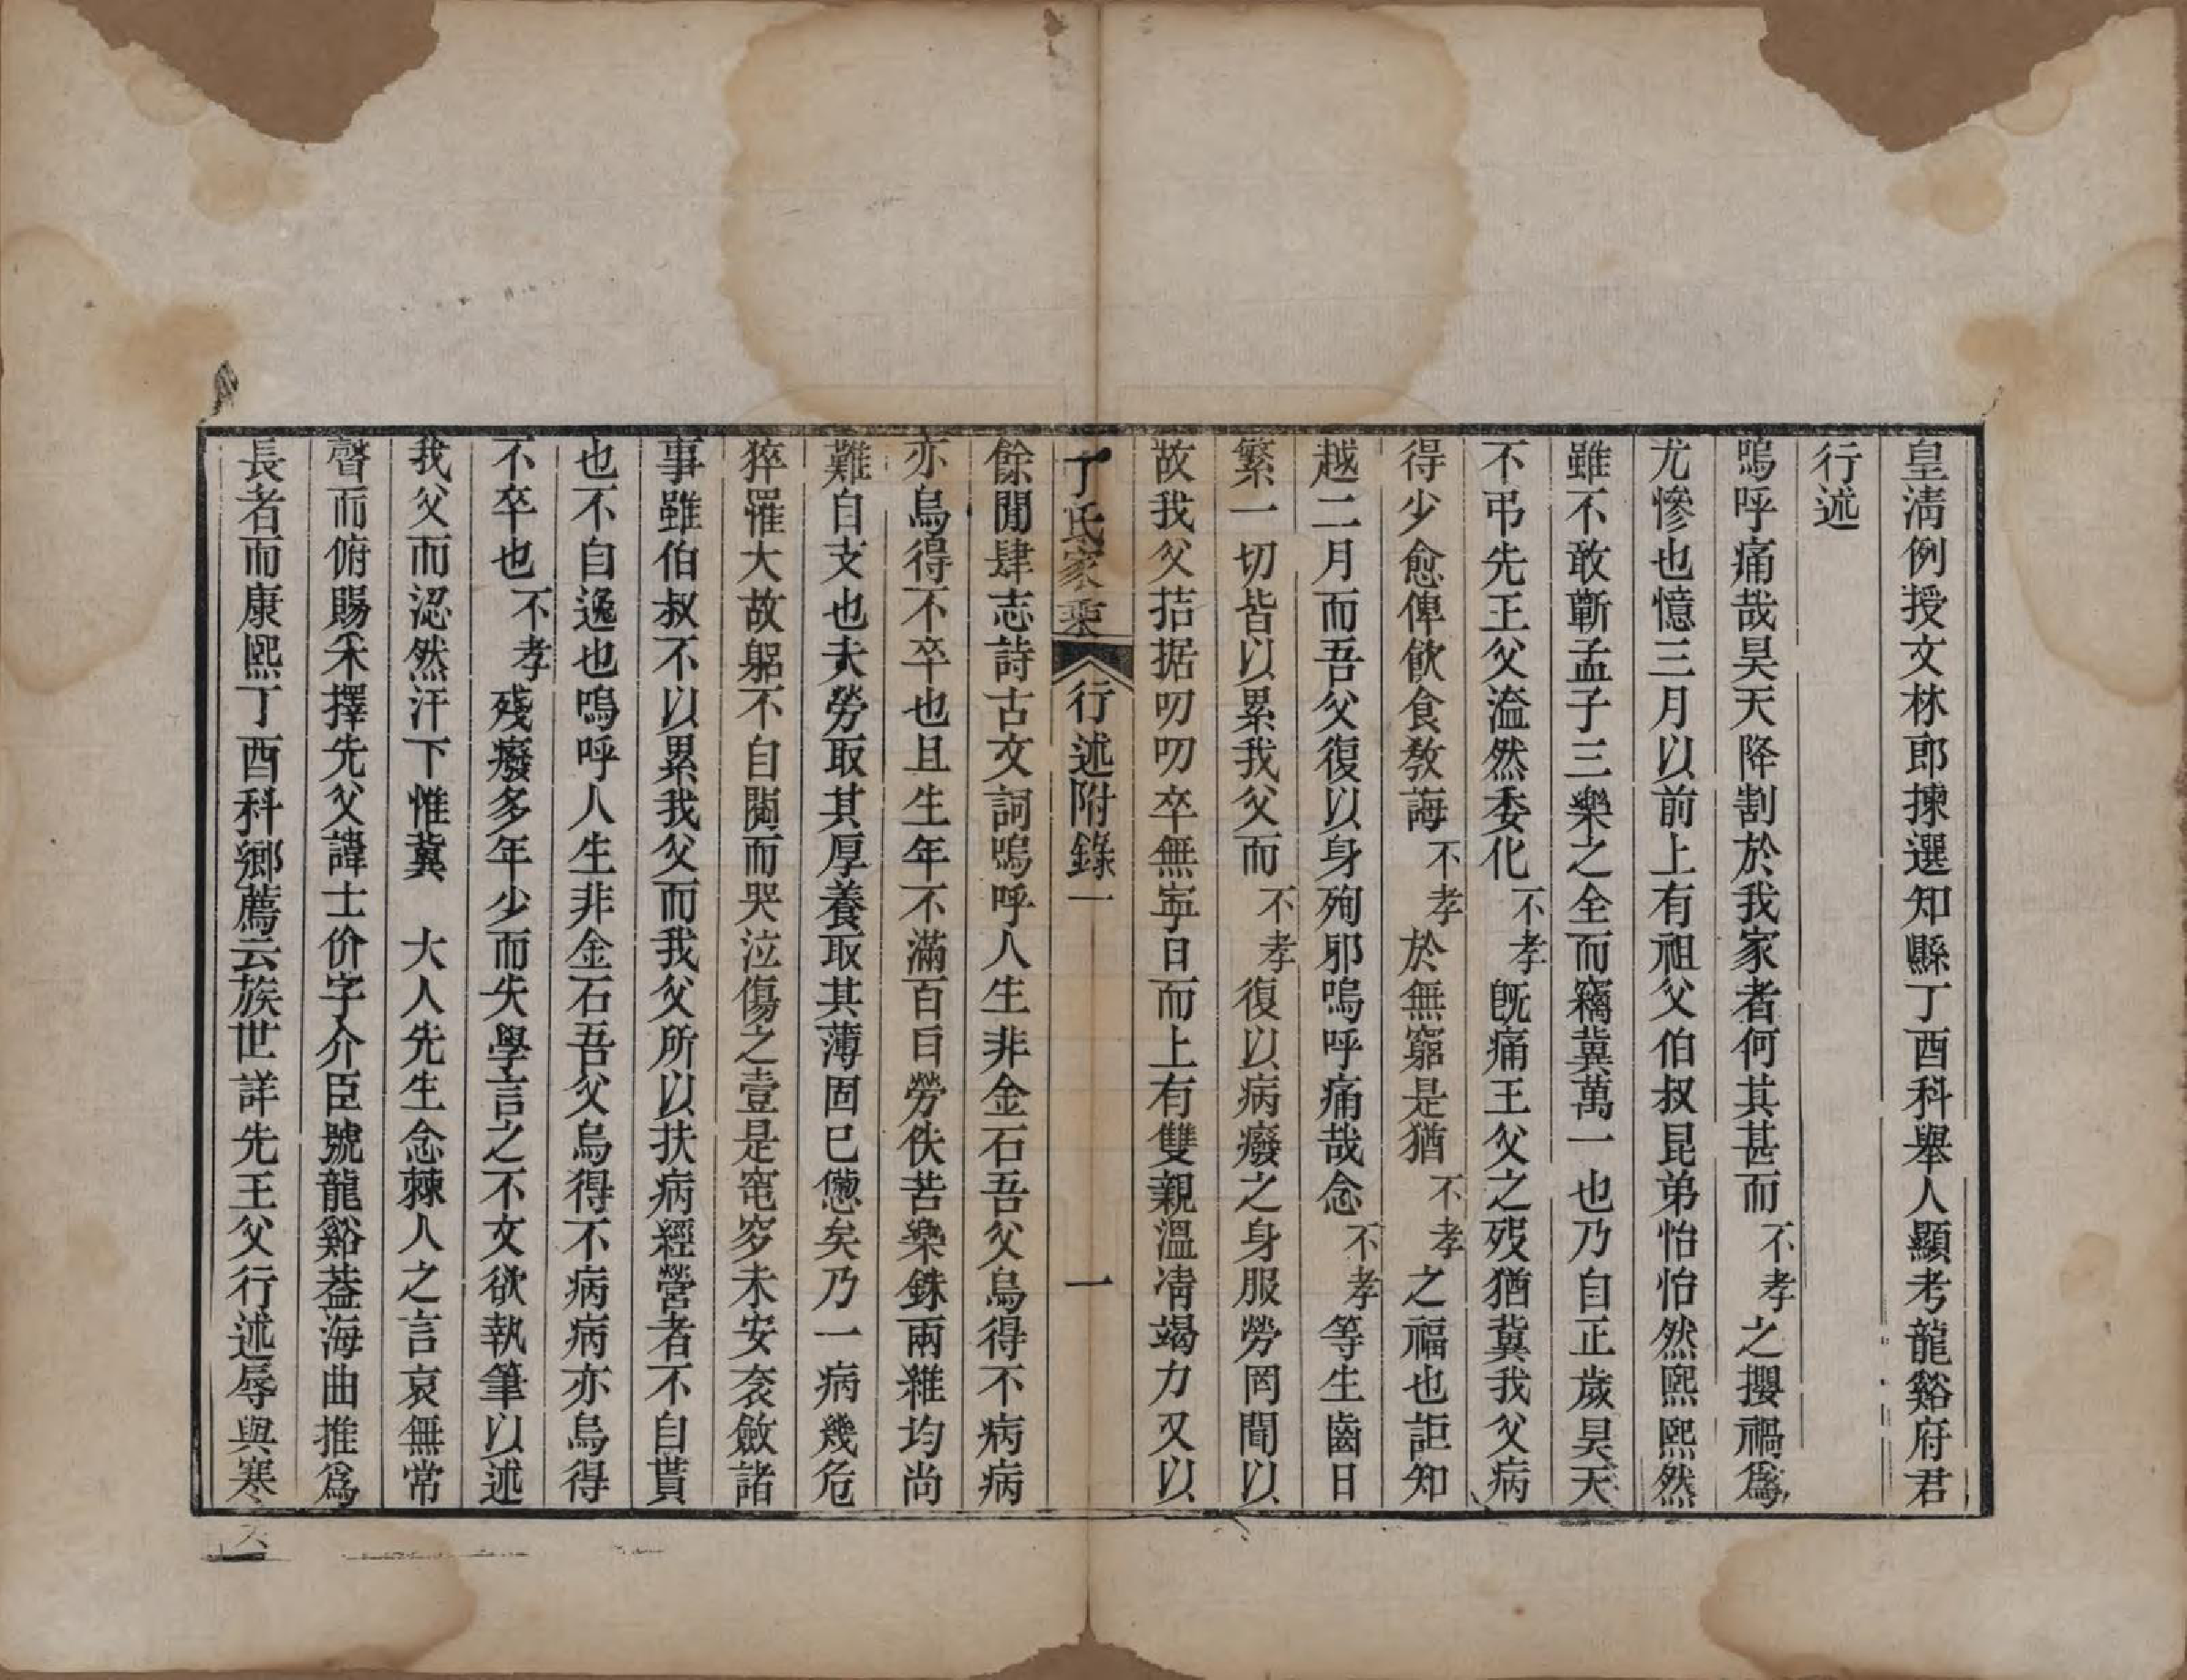 皇清例授文林郎揀選知縣丁酉科舉人顯考龍谿府君
行述
嗚呼痛哉昊天降割於我家者何其甚而不孝之攖禍爲
尤慘也憶三月以前上有祖父伯叔昆弟怡怡然熙熙然
雖不敢蘄孟子三樂之全而竊冀萬一也乃自正歲昊天
不弔先王父溘然委化不孝旣痛王父之歿猶冀我父病
得少愈俾飲食敎誨不孝於無窮是猶不孝之福也詎知
越二月而吾父復以身殉耶嗚呼痛哉念不孝等生齒日
繁一切皆以累我父而不孝復以病癈之身服勞罔閒以
故我父拮据叨叨卒無寧日而上有雙親溫凊竭力又以
丁氏家乘 行述附錄一 一
餘閒肆志詩古文詞嗚呼人生非金石吾父烏得不病病
亦烏得不卒也且生年不滿百日勞佚苦樂銖兩雜均尚
難自支也夫勞取其厚養取其薄固已憊矣乃一病幾危
猝罹大故躬不自閲而哭泣傷之壹是窀穸未安衾斂諸
事雖伯叔不以累我父而我父所以扶病經營者不自貰
也不自逸也嗚呼人生非金石吾父烏得不病病亦烏得
不卒也不孝殘癈多年少而失學言之不文欲執筆以述
我父而認然汗下惟冀 大人先生念棘人之言哀無常
聲而俯賜采擇先父諱士价字介臣號龍谿葢海曲推爲
長者而康熙丁酉科鄉薦云族世詳先王父行述辱與寒